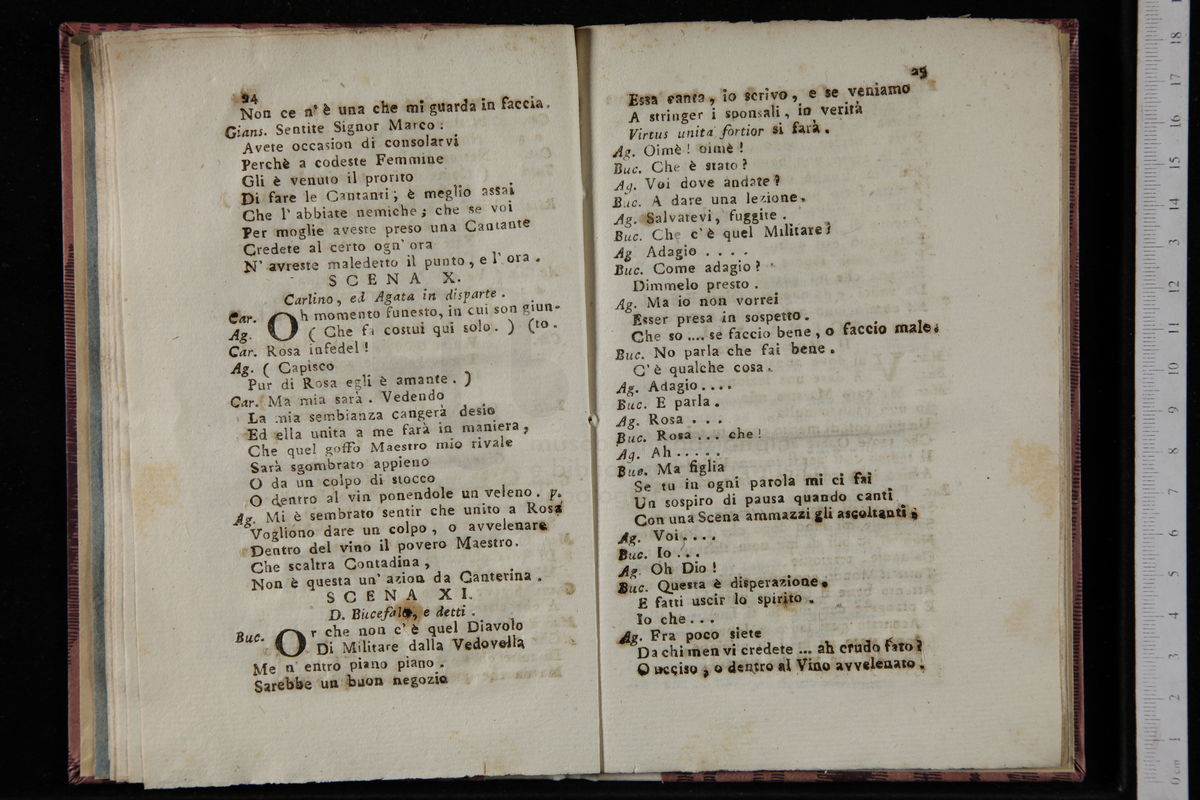 24
Non ce n' è una che mi guarda in faccia.
Gians. Sentite Signor Marco:
Avete occasion di consolarvi
Perchè a codeste Femmine
Gli è venuto il prorito
Di fare le Cantanti; è meglio assai
Che l' abbiate nemiche; che se voi
Per moglie aveste preso una Cantante
Credete al certo ogn' ora
N' avreste maledetto il punto, e l' ora.
SCENA X.
Carlino, ed Agata in disparte.
Car. Oh momento funesto, in cui son giun-
Ag. ( Che fa costui qui solo. ) (to.
Car. Rosa infedel!
Ag. ( Capisco
Pur di Rosa egli è amante. )
Car. Ma mia sarà. Vedendo
La mia sembianza cangerà desio
Ed ella unita a me farà in maniera,
Che quel goffo Maestro mio rivale
Sarà sgombrato appieno
O da un colpo di stocco
O dentro al vin ponendole un veleno. p.
Ag. Mi è sembrato sentir che unito a Rosa
Vogliono dare un colpo, o avvelenare
Dentro del vino il povero Maestro.
Che scaltra Contadina,
Non è questa un' azion da Canterina.
SCENA XI.
D. Bucefalo, e detti.
Buc. Or che non c' è quel Diavolo
Di Militare dalla Vedovella
Me n' entro piano piano.
Sarebbe un buon negozio
25
Essa canta, io scrivo, e se veniamo
A stringer i sponsali, in verità
Virtus unita fortior si farà.
Ag. Oimè! oimè!
Buc. Che è stato?
Ag. Voi dove andate?
Buc. A dare una lezione.
Ag. Salvatevi, fuggite.
Buc. Che c' è quel Militare?
Ag Adagio ....
Buc. Come adagio?
Dimmelo presto.
Ag. Ma io non vorrei
Esser presa in sospetto.
Che so .... se faccio bene, o faccio male.
Buc. No parla che fai bene.
C' è qualche cosa.
Ag. Adagio....
Buc. E parla.
Ag. Rosa ...
Buc. Rosa ... che!
Ag. Ah .....
Buc. Ma figlia
Se tu in ogni parola mi ci fai
Un sospiro di pausa quando canti
Con una Scena ammazzi gli ascoltanti;
Ag. Voi....
Buc. Io ...
Ag. Oh Dio!
Buc. Questa è disperazione.
E fatti uscir lo spirito.
Io che...
Ag. Fra poco siete
Da chi men vi credete ... ah crudo fato?
O ucciso, o dentro al Vino avvelenato.